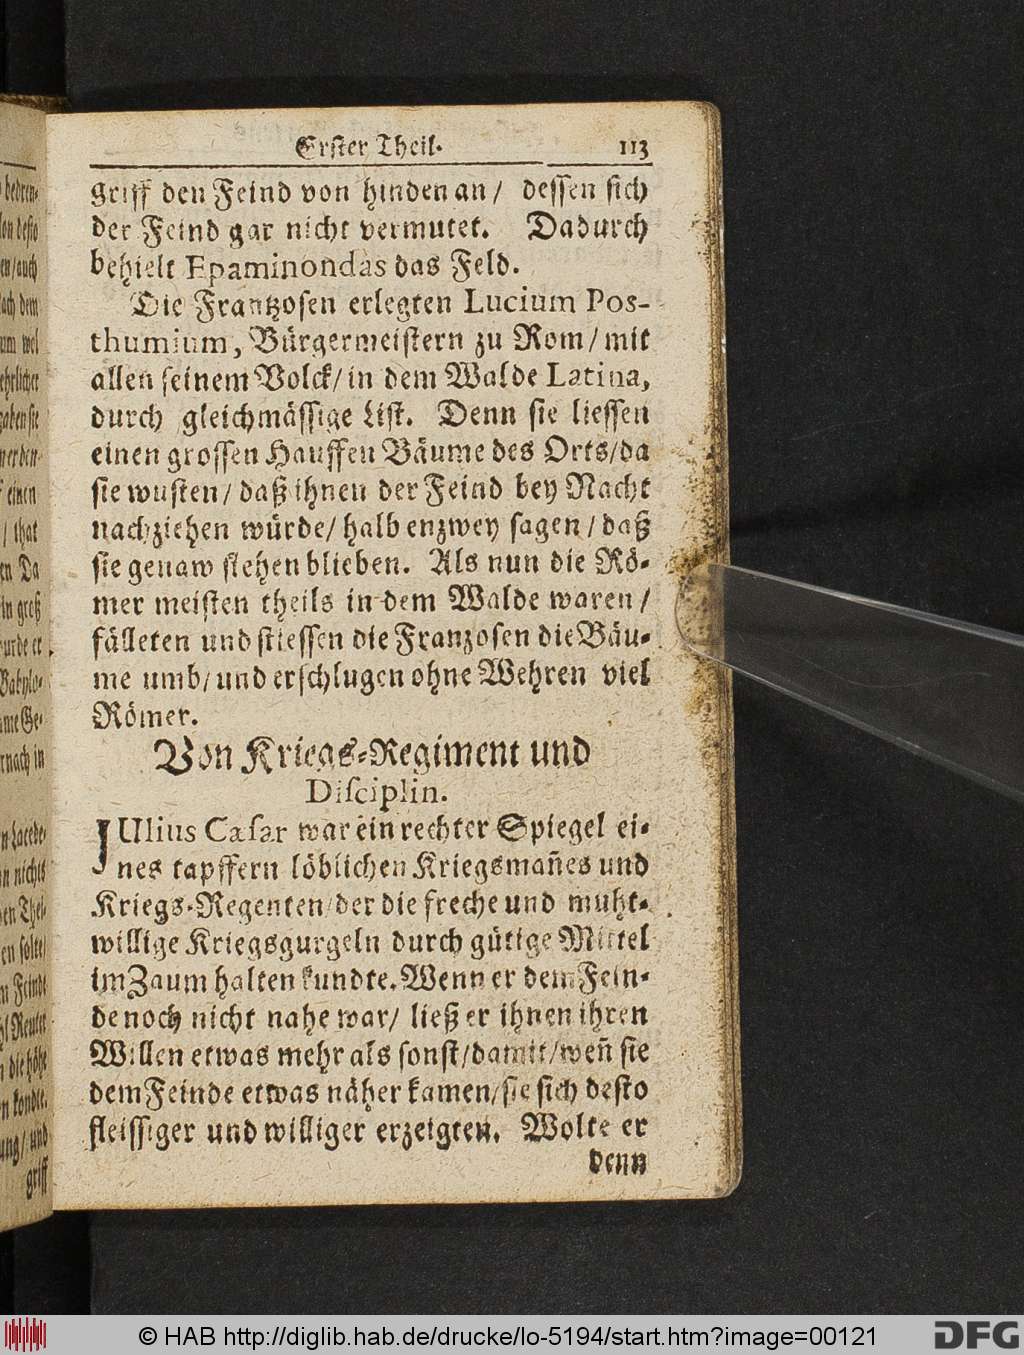 Erster Theil. 113
griff den Feind von hinden an / dessen sich
der Feind gar nicht vermutet. Dadurch
behielt Epaminondas das Feld.
Die Frantzosen erlegten Lucium Pos-
thumium, Bürgermeistern zu Rom / mit
allen seinem Volck / in dem Walde Latina,
durch gleichmässige List. Denn sie liessen
einen grossen Hauffen Bäume des Orts / da
sie wusten / daß ihnen der Feind bey Nacht
nachziehen würde / halb enzwey sagen / daß
sie genaw stehen blieben. Als nun die Rö-
mer meisten theils in dem Walde waren /
fälleten und stiessen die Franzosen die Bäu-
me umb / und erschlugen ohne Wehren viel
Römer.
Von Kriegs-Regiment und
Disciplin.
JUlius Cæsar war ein rechter Spiegel ei-
nes tapffern löblichen Kriegsmañes und
Kriegs-Regenten / der die freche und muht-
willige Kriegsgurgeln durch gütige Mittel
im Zaum halten kundte. Wenn er dem Fein-
de noch nicht nahe war / ließ er ihnen ihren
Willen etwas mehr als sonst / damit / weñ sie
dem Feinde etwas näher kamen / sie sich desto
fleissiger und williger erzeigten. Wolte er
denn
© HAB http://diglib.hab.de/drucke/lo-5194/start.htm?image=00121
DFG